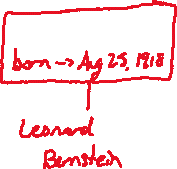 born -> Ag 25, 1918
Leonard
Bernstein